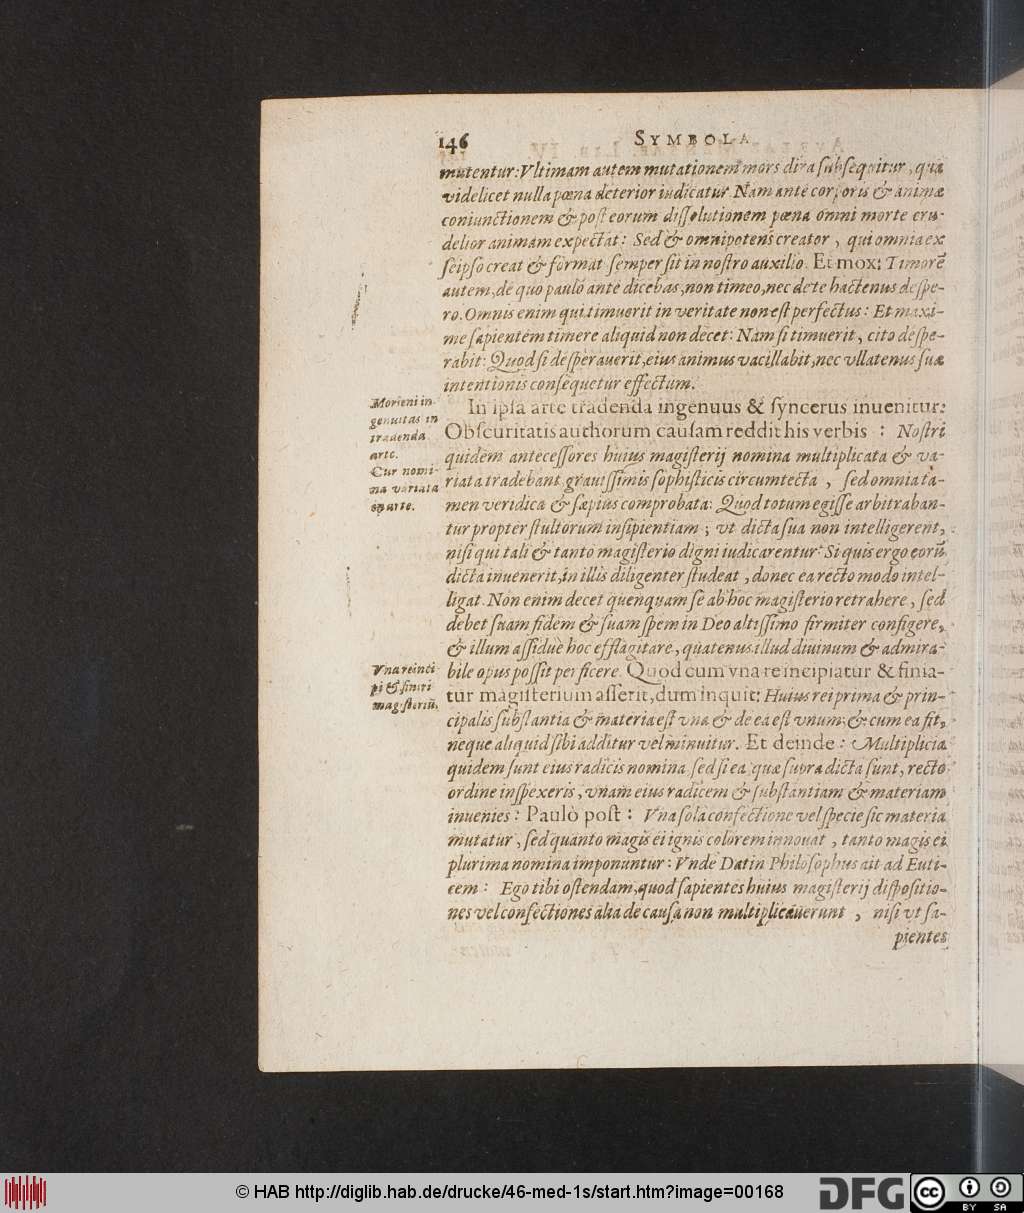 146 SYMBOLA
mutentur: Vltimam autem mutationem mors dira subsequitur, qua
videlicet nulla pœna deterior iudicatur. Nam ante corporis & animæ
coniunctionem & post eorum dissolutionem pœna omni morte cru-
delior animam expectat: Sed & omnipotens creator, qui omnia ex
seipso creat & format semper sit in nostro auxilio. Et mox: Timorē
autem, de quo paulò ante dicebas, non timeo, nec de te hactenus despe-
ro. Omnis enim qui timuerit in veritate non est perfectus: Et maxi-
me sapientem timere aliquid non decet: Nam si timuerit, cito despe-
rabit: Quod si desperauerit, eius animus vacillabit, nec vllatenus suæ
intentionis consequetur effectum.
Morieni in-
genuitas in
tradenda
arte.
Cur nomi-
na variata
in arte.
In ipsa arte tradenda ingenuus & syncerus inuenitur:
Obscuritatis authorum causam reddit his verbis : Nostri
quidem antecessores huius magisterij nomina multiplicata & va-
riata tradebant grauissimis sophisticis circumtecta, sed omnia ta-
men veridica & sæpius comprobata: Quod totum egisse arbitraban-
tur propter stultorum insipientiam; vt dicta sua non intelligerent,
nisi qui tali & tanto magisterio digni iudicarentur: Si quis ergo eorū
dicta inuenerit, in illis diligenter studeat, donec ea recto modo intel-
ligat. Non enim decet quenquam se ab hoc magisterio retrahere, sed
debet suam fidem & suam spem in Deo altissimo firmiter configere,
& illum assiduè hoc efflagitare, quatenus illud diuinum & admira-
bile opus possit perficere. Quod cum vna re incipiatur & finia-
tur magisterium asserit, dum inquit: Huius rei prima & prin-
cipalis substantia & materia est vna & de ea est vnum; & cum ea fit,
neque aliquid sibi additur vel minuitur. Et deinde: Multiplicia
quidem sunt eius radicis nomina, sed si ea quæ supra dicta sunt, recto
ordine inspexeris, vnam eius radicem & substantiam & materiam
inuenies: Paulò post: Vna sola confectione vel specie sic materia
mutatur, sed quanto magis ei ignis colorem innouat, tanto magis ei
plurima nomina imponuntur: Vnde Datin Philosophus ait ad Euti-
cem: Ego tibi ostendam, quod sapientes huius magisterij dispositio-
nes vel confectiones alia de causa non multiplicauerunt, nisi vt sa-
pientes
Vna re inci-
pi & finiri
magisteriū.
© HAB http://diglib.hab.de/drucke/46-med-1s/start.htm?image=00168
DFG
cc BY SA